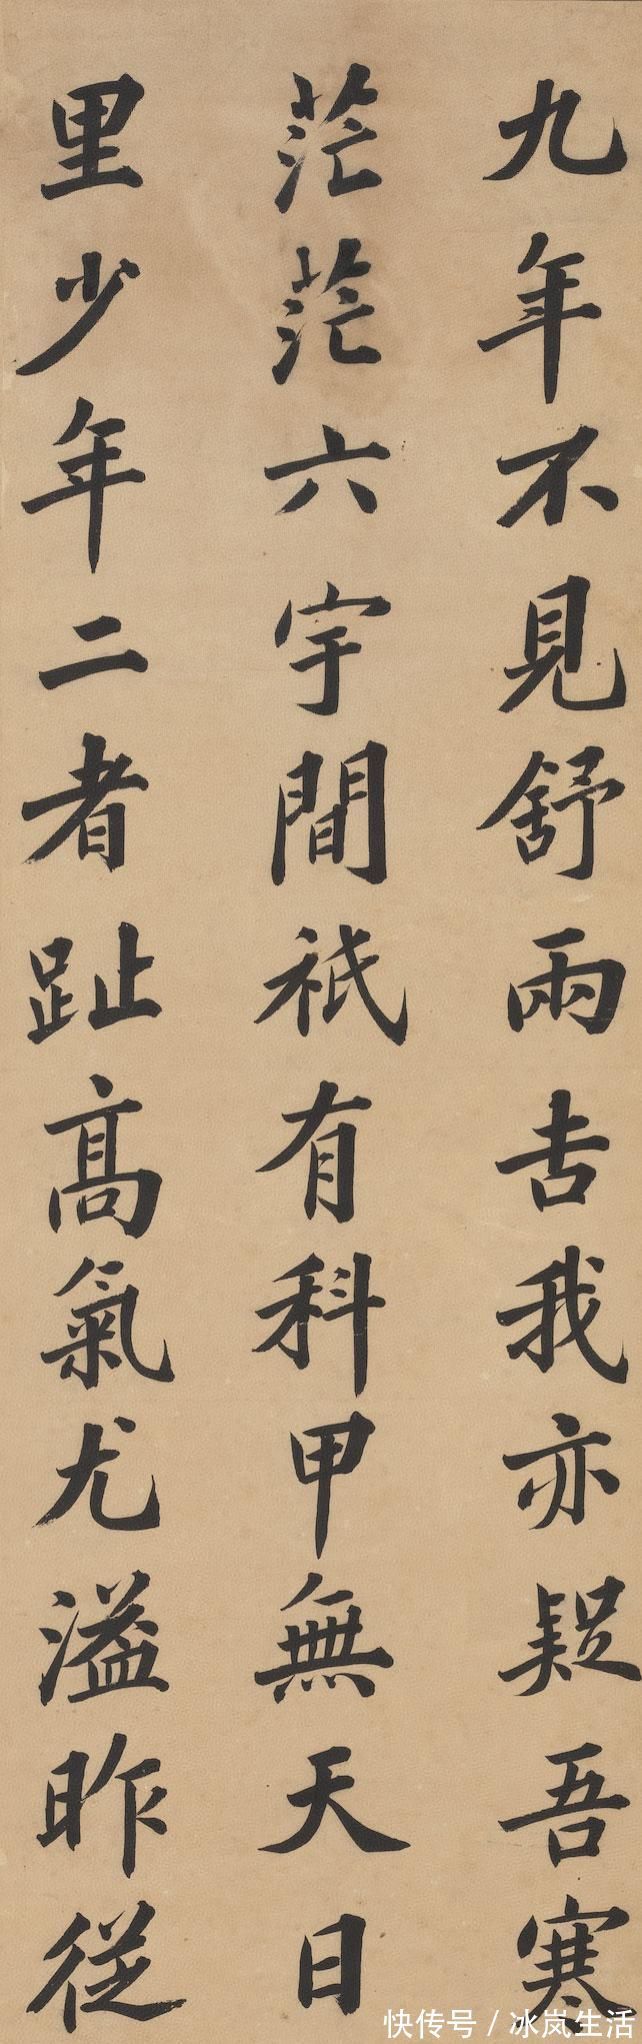 九年不見舒兩吉我亦疑吾寒
茫茫六宇間祇有科甲無天日
里少年二者趾高氣尤溢昨從
快传号 / 冰岚生活